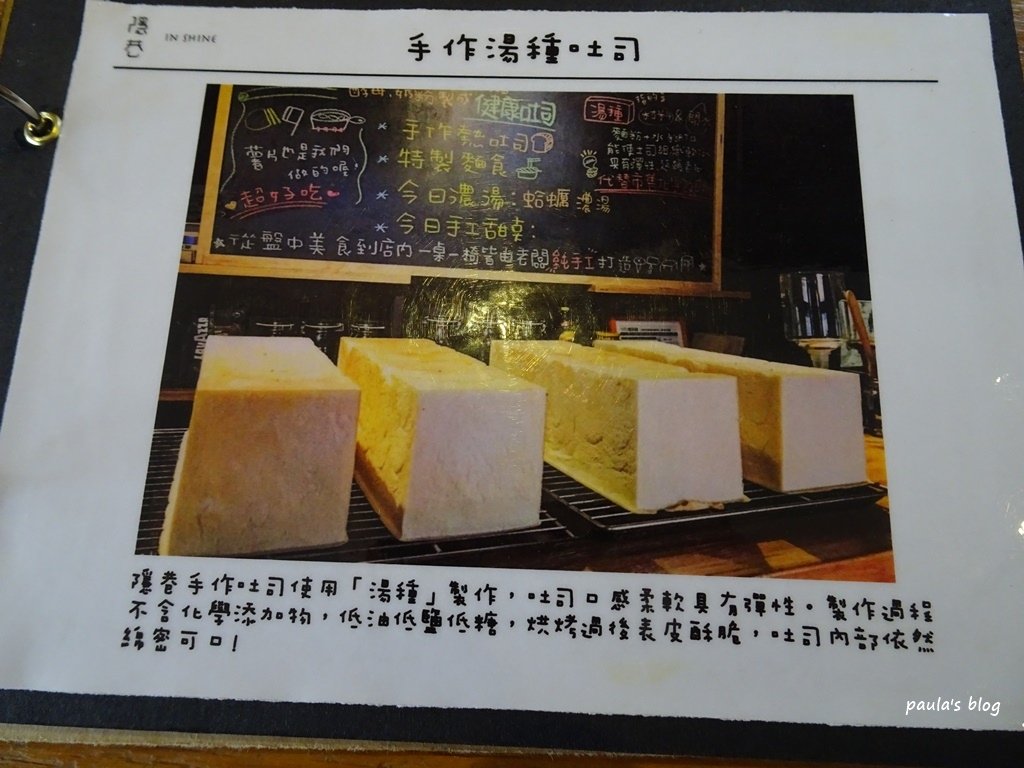 隱巷 IN SHINE
手作湯種吐司
健康吐司
湯種
* 手作熱吐司
* 特製麵食
* 今日濃湯:蛤蠣濃湯
* 今日手工甜點:
薯片也是我們
做的喔
超好吃
麵粉+水
能使土司組織
代替市售
從盤中美食到店內一桌一椅皆由老闆純手工打造
LAVAZZA
隱巷手作吐司使用「湯種」製作,吐司口感柔軟具有彈性。製作過程
不含化學添加物,低油低鹽低糖,烘烤過後表皮酥脆,吐司內部依然
綿密可口!
paula's blog